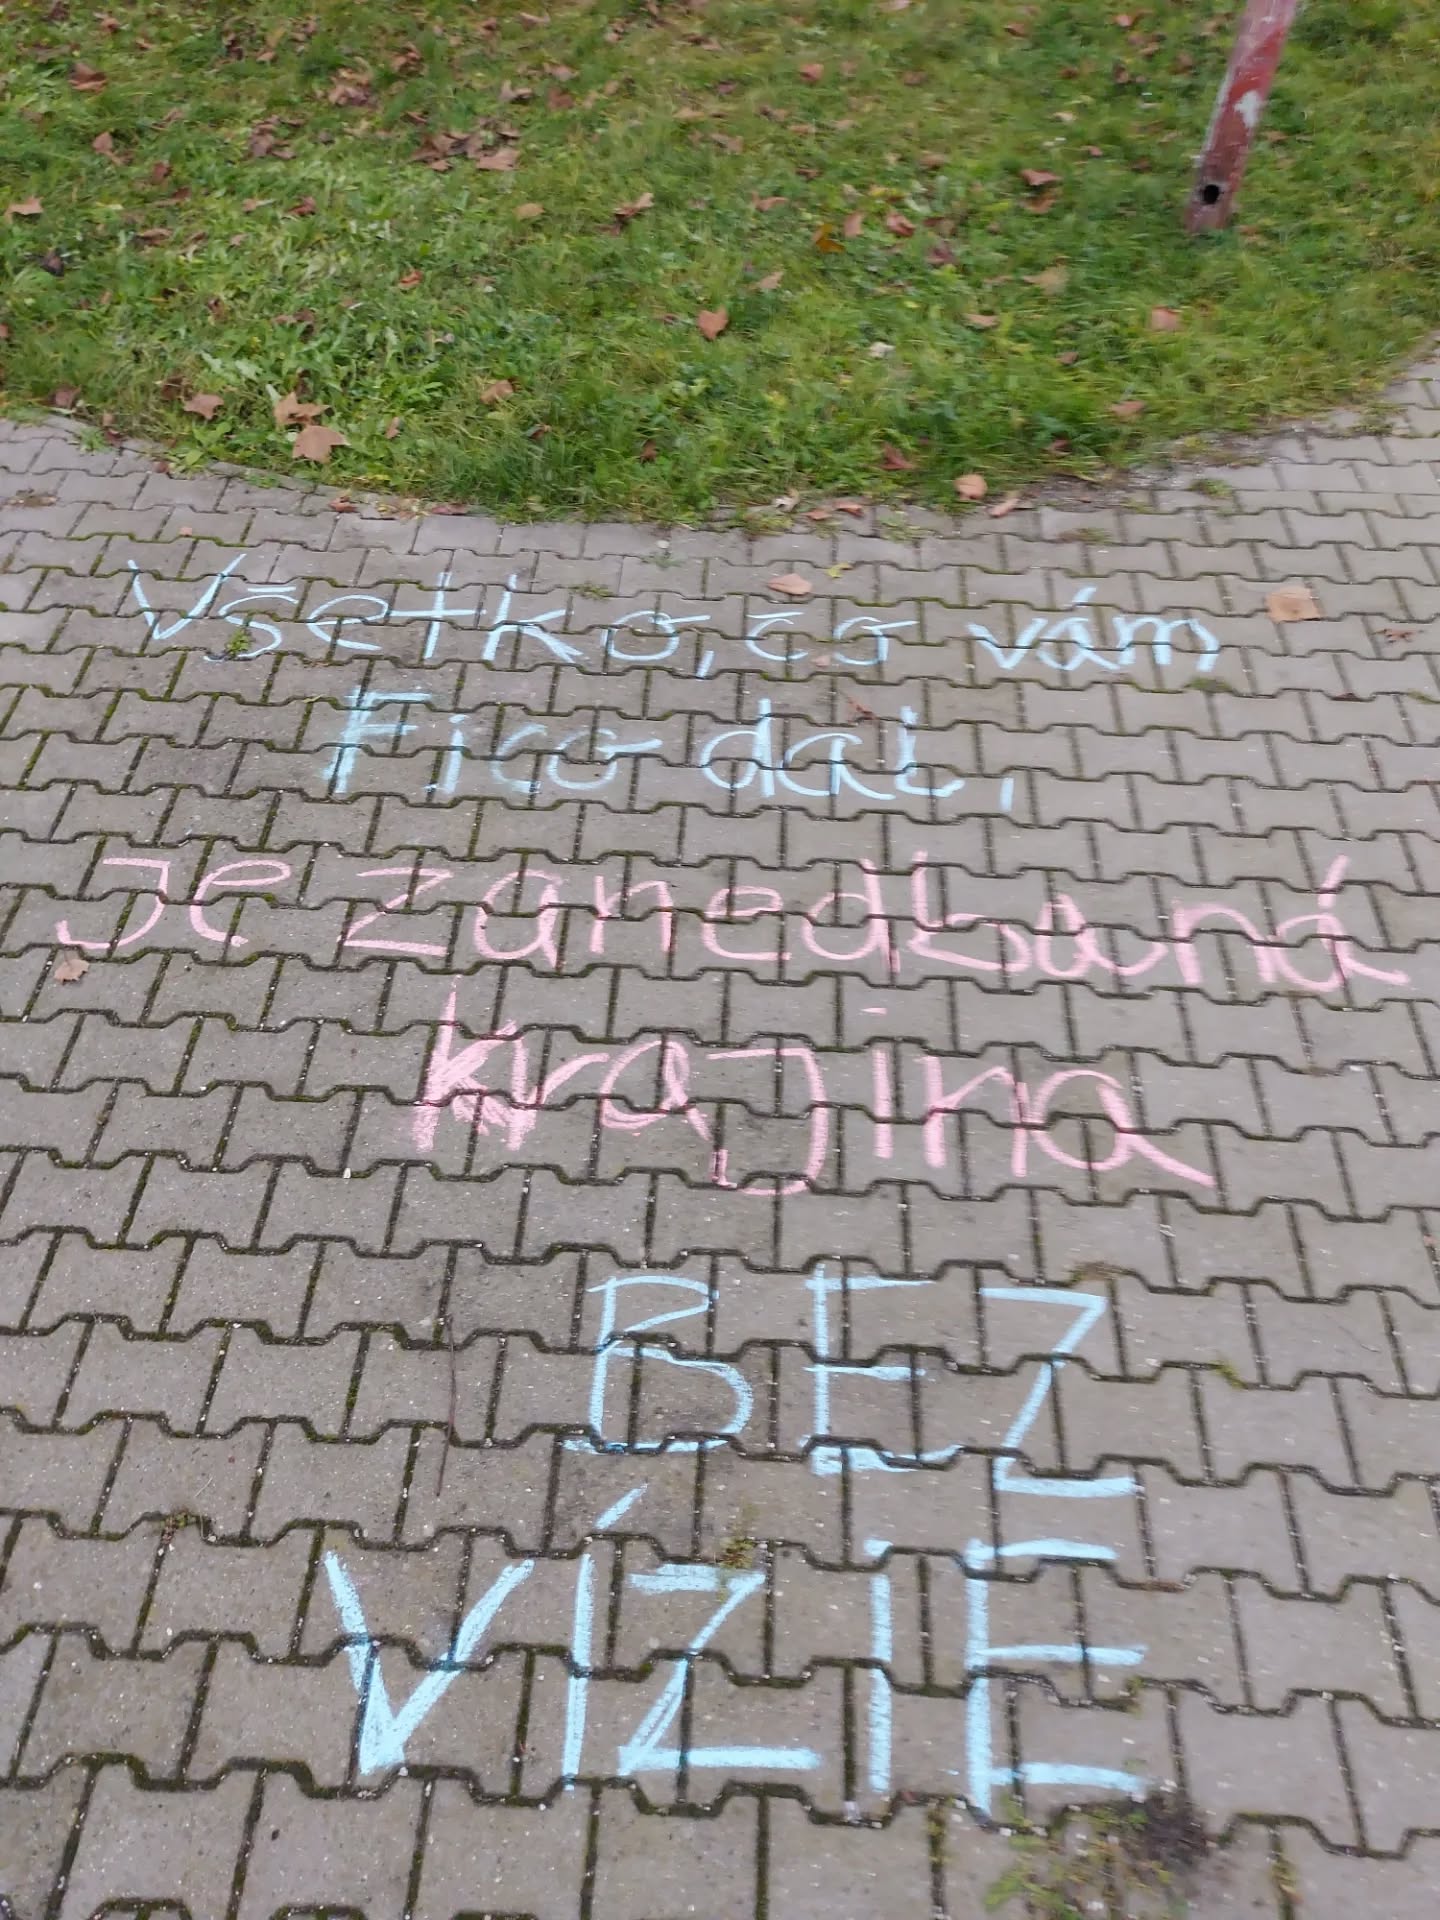 Všetko, čo vám
Fico dal,
je zanedbaná
krajina
BEZ
VÍZIE